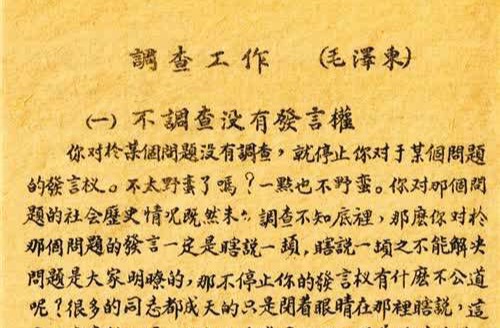 調查工作 (毛澤東)
(一) 不調查没有發言權
你对於某個問題没有調查，就停止你对于某個問題
的發言权。不太野蛮了嗎？一點也不野蛮。你对那個問
題的社会歷史情况既然未 調查不知底裡，那麽你对於
那個問題的發言一定是瞎説一頓，瞎説一頓之不能解决
問題是大家明瞭的，那不停止你的發言权有什麽不公道
呢？很多的同志都成天的只是閉着眼睛在那裡瞎説，這